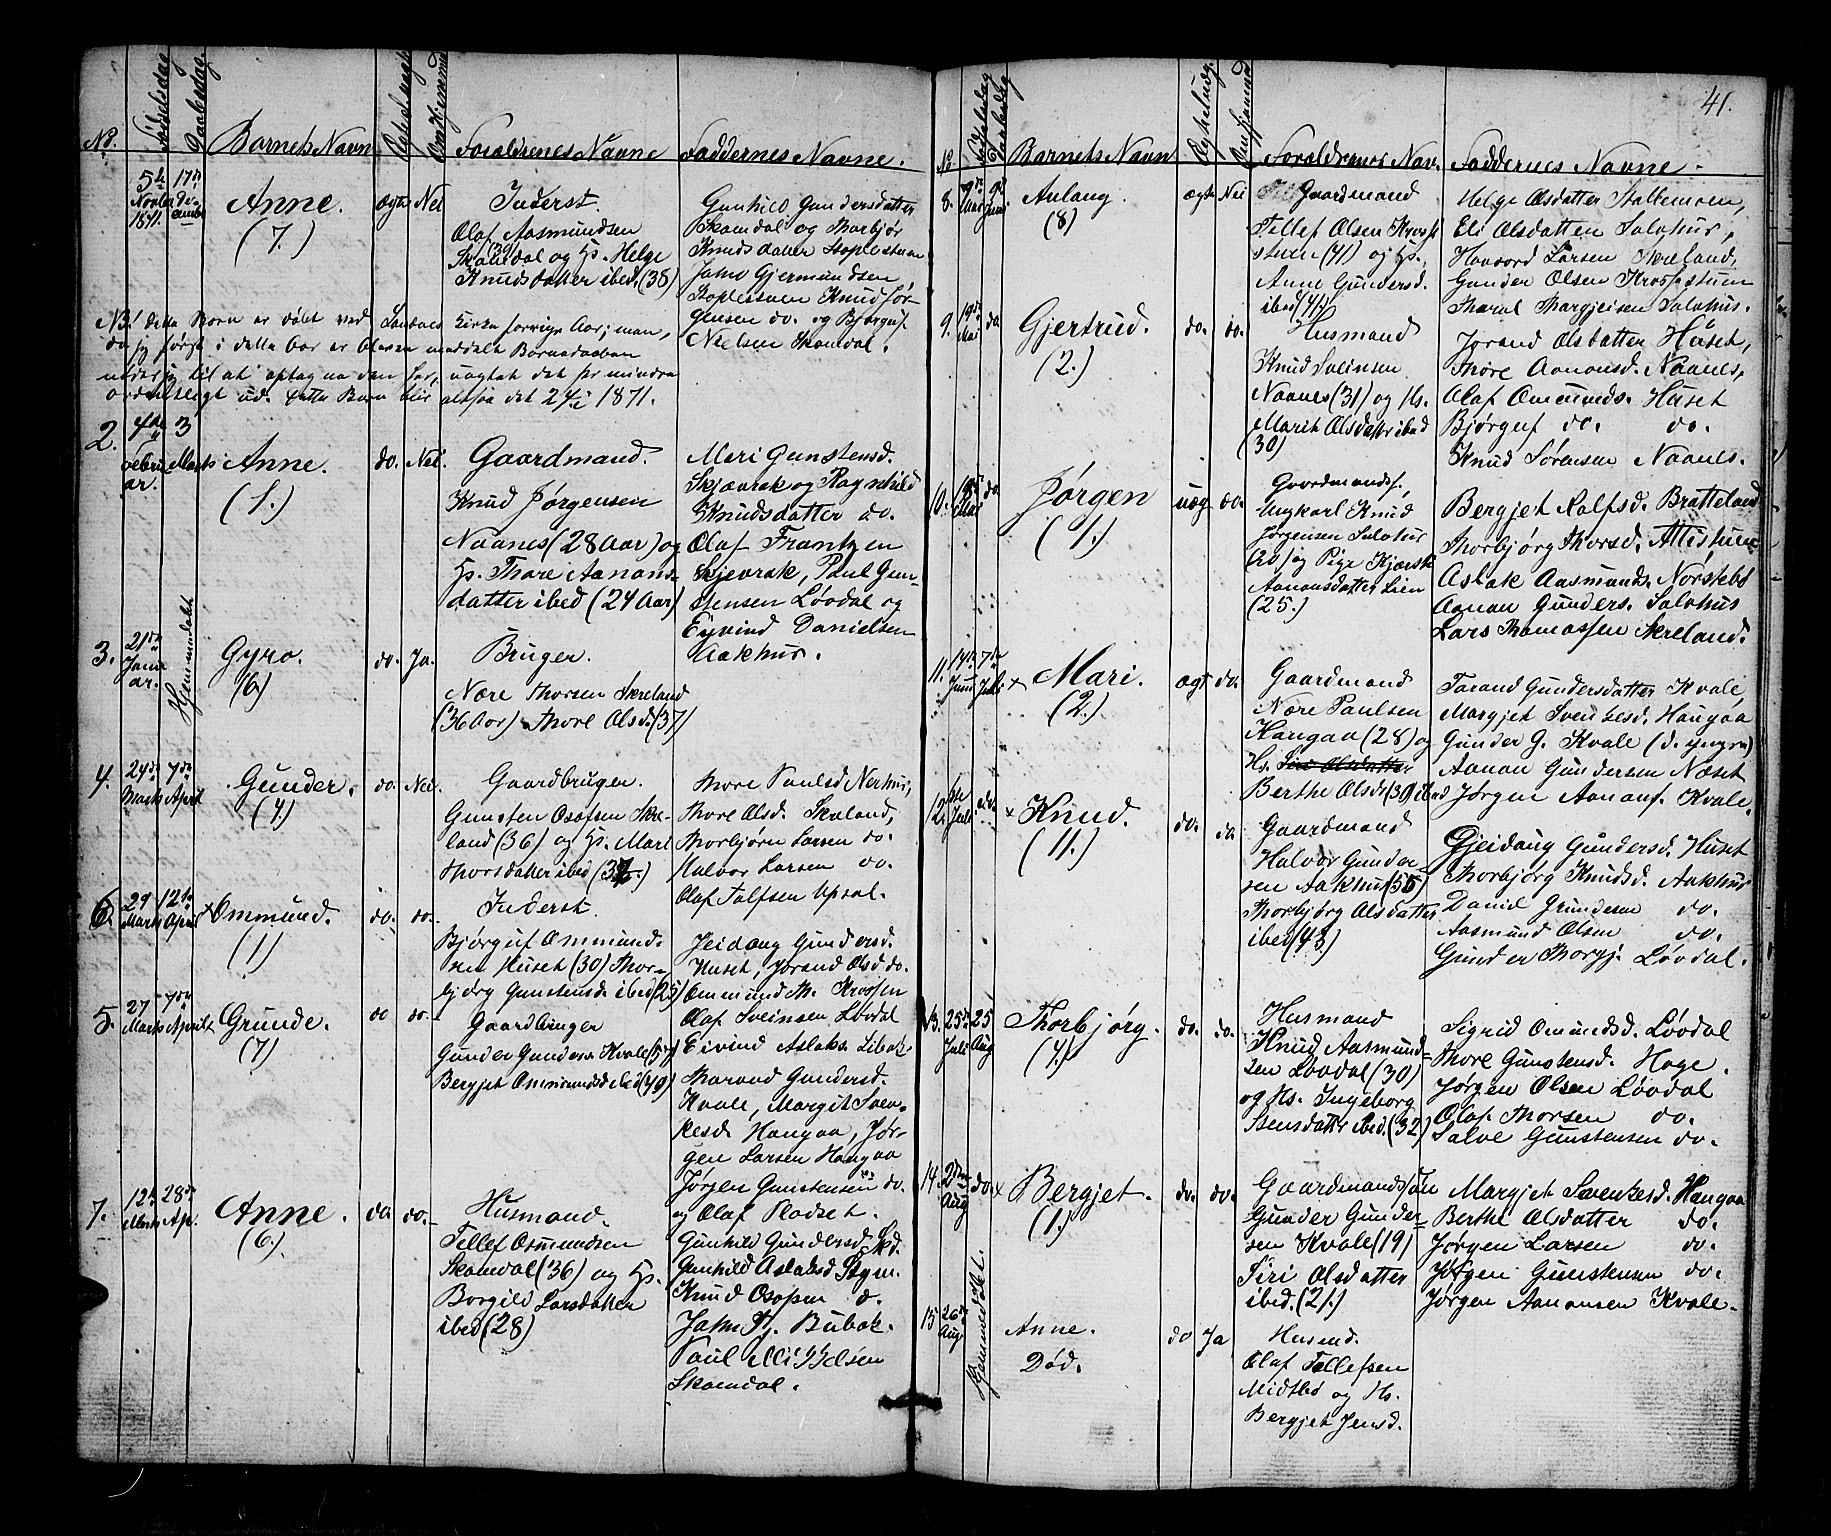 No. Fødselsdag Daabsdag Barnets Navn Forældrenes Navne Faddernes Navne.
5te Novbr 1871. 17de Anne. (7.) ægte Nei Inderst. Olaf Aasmundsen Skomdal (39) og Hs. Helge Knudsdatter ibed. (38)
Gunhild Gundersdatter
Skomdal og Thorbjør
Knudsdatter Stoplestuen
Jahn Gjermundsen
Stoplestuen Knud Jør-
gensen do. og Bjørguf
Nielsen Skomdal.
NB! dette Barn er døbt ved Kirke forrige Aar; man,
da jeg først i dette Aar er bleven meddelt Barnedaaben
til at optagna den her, uagtet det før mindre
ordentligt ud. Dette Barn blir altsaa det 24 i 1871.
2. 4de Februar. 3 Marts Anne. (1.) do. Nei.
Gaardmand.
Knud Jørgensen
Naanes (28 Aar) og
Hs. Thore Aanons-
datter ibed (24 Aar)
Mari Gunstensd.
Skjævrak og Ragnhild
Knudsdatter do.
Olaf Frantzen
Skjevrak, Paul Gun-
stensen Løvdal og
Eyvind Danielsen
Aakhus.
3. 21de Januar. Hjemmedøbt Gyro. (6) do. Ja.
Bruger.
Nære Thorsen Skreland
(36 Aar) Thore Olsd. (37)
4. 24de Marts 7de April Gunder. (4) do. Nei.
Gaardbruger.
Gunsten Osofsen Skre-
land (36) og Hs. Mari
Thorsdatter ibed
Thore Paulsd Nerhus,
Thore Olsd. Skreland,
Thorbjørn Larsen do.
Halvor Larsen do.
Olaf Talfsen Upsal.
6. 29 Marts 12te April × Ommund. (1) do. do.
Inderst.
Bjørguf Ommund-
sen Huset (30) Thor-
bjørg Gunstensd. ibed (25)
Jeidang Gundersd.
Huset, Jorand Olsd do.
Ommund Th. Krossen
Olaf Sveinsen Løvdal
5. 27 Marts 7de April × Grunde. (7) do do.
Gaardbruger
Gunder Gunders. Kvale (57)
Bergjet Ommundsd ibed (49)
Eivind Aslaks. Libak
Tharand Gundersd.
Kvale, Margit Sven-
kesd. Haugaa, Jør-
gen Larsen Haugaa
Jørgen Gunstensen do.
og Olaf Rodset.
7. 12te Marts 28de Ap. Anne. (6) do do.
Husmand.
Tellef Osmundsen
Skomdal (36) og Hs.
Borgild Larsdatter
ibed (28)
Gunhild Gundersd. Skd.
Gunhild Aslaksd
Knud Osofsen d.
Jahn Th. Bubak.
Paul
Skomdal.
41.
No Barnets Navn Forældrernes Nav. Faddernes Navne.
8. 9de Juni Aulaug (8) ægte Nei
Gaardmand
Tellef Olsen Kross-
stuen (41) og Hs.
Anne Gundersd.
ibed (41)
Helge Olsdatter Staltemoen,
Eli Olsdatter Salohus,
Haavord Larsen Skreland,
Gunder Olsen Krossestuen
Tharal Thorgjeisen Salohus.
9. 19de Mai do. Gjertrud. (2.) do. do.
Husmand
Knud Sveinsen
Naanes (31) og Hs.
Marit Olsdatter ibed
(30)
Jorand Olsdatter Huset,
Thore Aanonsd. Naanes,
Olaf Ommunds. Huset
Bjørguf do. do.
Knud Sørensen Naanes.
10. 19de Mai do. Jørgen (1.) uæg do.
Gaardmands.
Ungkarl Knud
Jørgensen Salohus
(20) og Pige Kjærst
Aanonsdatter Lien
(25.)
Bergjet Rolfsd. Bratteland
Thorbjørg Thorsd. Attestuen
Aslak Aasmunds. Norstebø
Aanon Gunders. Salohus
Lars Thomassen Skreland.
11. 14de Juni 7de Juli × Mari. (2.) ægt do.
Gaardmand
Nære Paulsen
Haugaa (28) og
Hs. Siri Olsdatter
Berthe Olsd. (30) ibed
Tarand Gundersdatter Kvale,
Margjet Svenkesd. Haugaa
Gunder G. Kvale (d. yngre)
Aanon Gundersen Næset
Jørgen Aanons. Kvale.
12. Juli do. × Knud. (11.) do. do
Gaardmand
Halvor Gunder
sen Aakhus (55)
Thorbjørg Olsdatter
ibed (45)
Gjeidaug Gundersd. Huset
Thorbjørg Knudsd. Aakhus
Daniel Grundesen do.
Aasmund Olsen do.
Gunder Thorgj. Løvdal.
13. 25de Juli 25 Aug Thorbjørg. (4.) do. do.
Husmand
Knud Aasmund-
sen Løvdal (30)
og Hs. Ingeborg
Jensdatter ibed. (32)
Sigrid Omundsd. Løvdal
Thore Gunstensd. Hage.
Jørgen Olsen Løvdal
Olaf Thorsen do.
Salve Gunstensen do.
14. 2den Aug do × Bergjet. (1.) do. do.
Gaardmandssøn
Gunder Gunder-
sen Kvale (19)
Siri Olsdatter
ibed. (21.)
Margjet Svenkesd. Haugaa
Berthe Olsdatter do.
Jørgen Larsen do.
Jørgen Gunstensen do.
Jørgen Aanonsen Kvale.
15 26de Aug Hjemmedøbt. Anne. Død. do Ja
Husmd.
Olaf Tellefsen
Midtbø og Hs.
Bergjet Jensd.